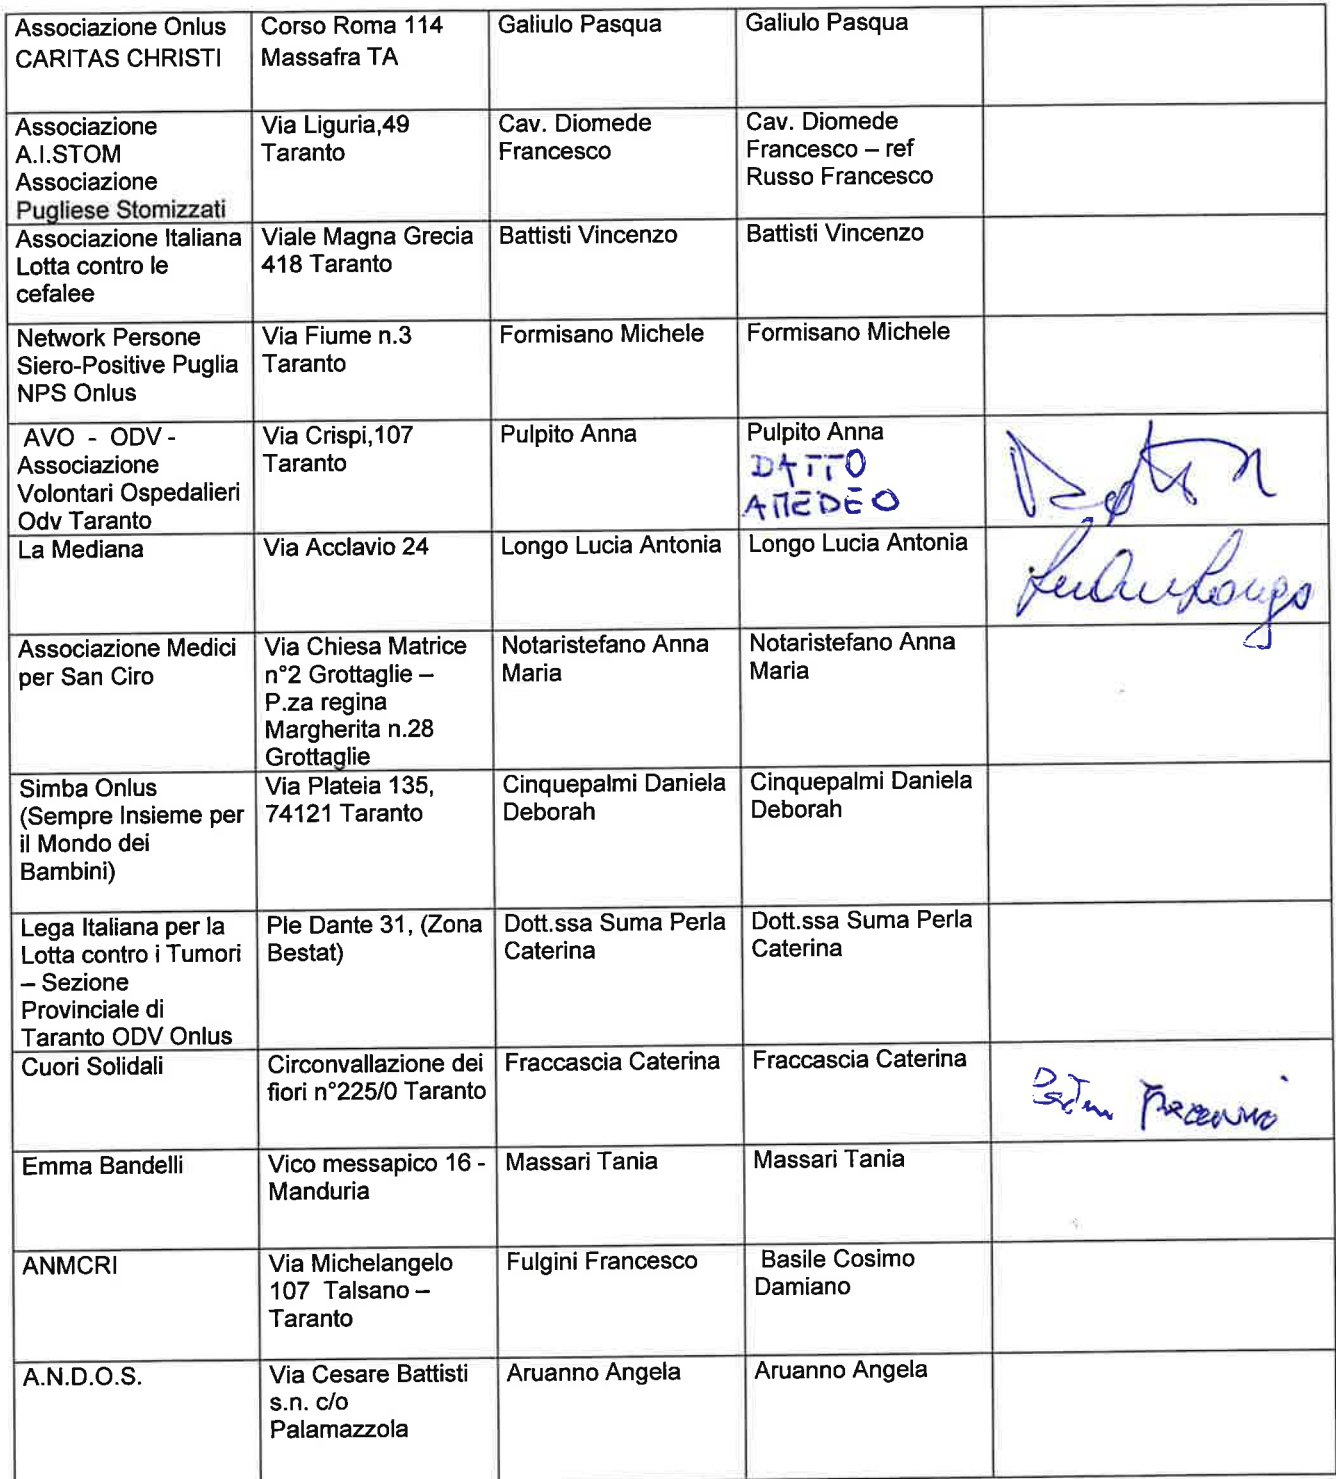 Associazione Onlus
CARITAS CHRISTI
Corso Roma 114
Massafra TA
Galiulo Pasqua
Galiulo Pasqua
Associazione
A.I.STOM
Associazione
Pugliese Stomizzati
Via Liguria,49
Taranto
Cav. Diomede
Francesco
Cav. Diomede
Francesco – ref
Russo Francesco
Associazione Italiana
Lotta contro le
cefalee
Viale Magna Grecia
418 Taranto
Battisti Vincenzo
Battisti Vincenzo
Network Persone
Siero-Positive Puglia
NPS Onlus
Via Fiume n.3
Taranto
Formisano Michele
Formisano Michele
AVO - ODV -
Associazione
Volontari Ospedalieri
Odv Taranto
Via Crispi,107
Taranto
Pulpito Anna
Pulpito Anna
DATTO
AMEDEO
La Mediana
Via Acclavio 24
Longo Lucia Antonia
Longo Lucia Antonia
Longo
Associazione Medici
per San Ciro
Via Chiesa Matrice
n°2 Grottaglie –
P.za regina
Margherita n.28
Grottaglie
Notaristefano Anna
Maria
Notaristefano Anna
Maria
Simba Onlus
(Sempre Insieme per
il Mondo dei
Bambini)
Via Plateia 135,
74121 Taranto
Cinquepalmi Daniela
Deborah
Cinquepalmi Daniela
Deborah
Lega Italiana per la
Lotta contro i Tumori
– Sezione
Provinciale di
Taranto ODV Onlus
Ple Dante 31, (Zona
Bestat)
Dott.ssa Suma Perla
Caterina
Dott.ssa Suma Perla
Caterina
Cuori Solidali
Circonvallazione dei
fiori n°225/0 Taranto
Fraccascia Caterina
Fraccascia Caterina
Emma Bandelli
Vico messapico 16 -
Manduria
Massari Tania
Massari Tania
ANMCRI
Via Michelangelo
107 Talsano –
Taranto
Fulgini Francesco
Basile Cosimo
Damiano
A.N.D.O.S.
Via Cesare Battisti
s.n. c/o
Palamazzola
Aruanno Angela
Aruanno Angela